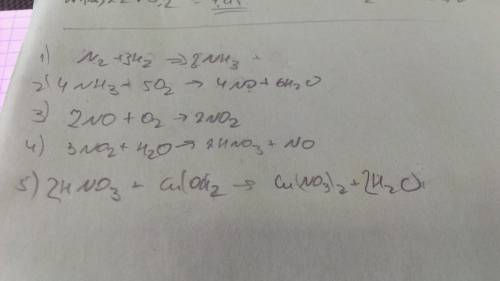 1) N₂ + 3H₂ ⇒ 2NH₃
2) 4NH₃ + 5O₂ → 4NO + 6H₂O
3) 2NO + O₂ → 2NO₂
4) 3NO₂ + H₂O → 2HNO₃ + NO
5) 2HNO₃ + Cu(OH)₂ → Cu(NO₃)₂ + 2H₂O